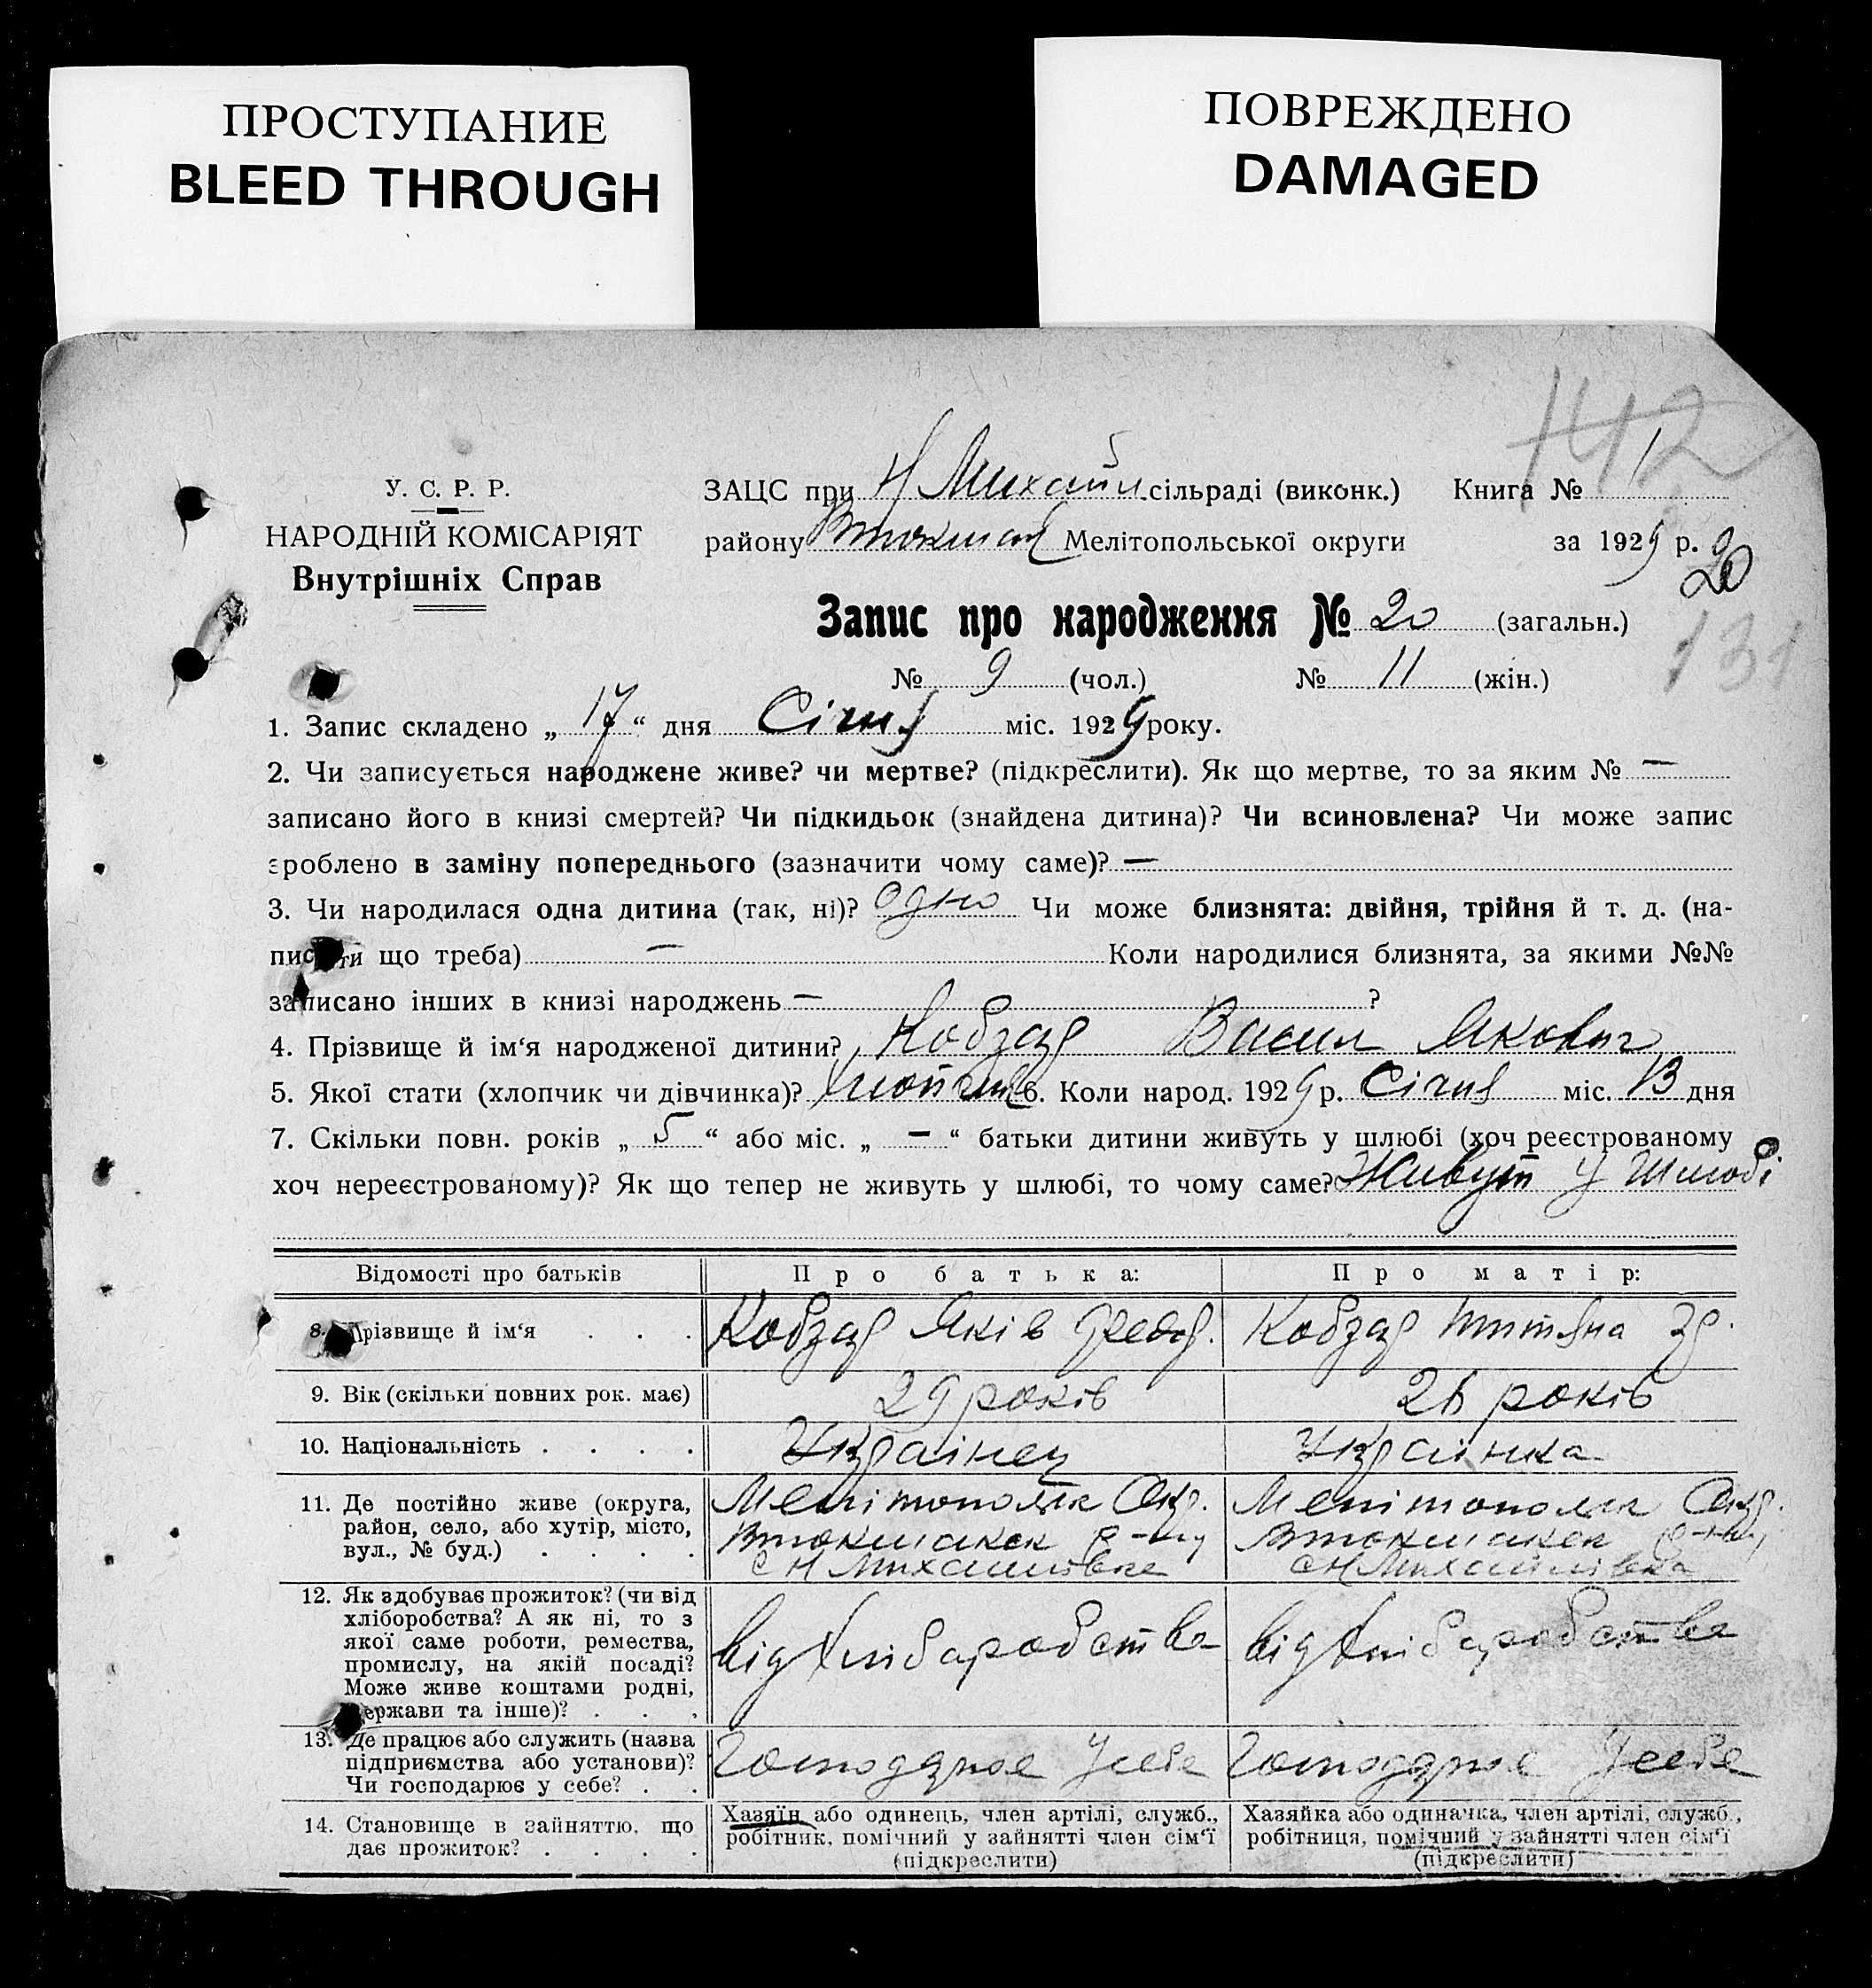 ПРОСТУПАНИЕ
BLEED THROUGH
ПОВРЕЖДЕНО
DAMAGED
142
У. С. Р. Р.
НАРОДНІЙ КОМІСАРІЯТ
Внутрішніх Справ
ЗАЦС при Н Михайл сільраді (виконк.) Книга № 1
району Втокмац Мелітопольської округи за 1929 р.
20
Запис про народження № 20 (загальн.)
131
№ 9 (чол.) № 11 (жін.)
1. Запис складено „ 17 “ дня Січня міс. 1929 року.
2. Чи записується народжене живе? чи мертве? (підкреслити). Як що мертве, то за яким № —
записано його в книзі смертей? Чи підкидьок (знайдена дитина)? Чи всиновлена? Чи може запис
зроблено в заміну попереднього (зазначити чому саме)? —
3. Чи народилася одна дитина (так, ні)? одно Чи може близнята: двійня, трійня й т. д. (на-
писати що треба) — Коли народилися близнята, за якими №№
записано інших в книзі народжень — ?
4. Прізвище й ім‘я народженої дитини? Кобзар Васил Якович
5. Якої стати (хлопчик чи дівчинка)? Хлопчик 6. Коли народ. 1929 р. Січня міс. 13 дня
7. Скільки повн. років „ 5 “ або міс. „ — “ батьки дитини живуть у шлюбі (хоч реєстрованому
хоч нереєстрованому)? Як що тепер не живуть у шлюбі, то чому саме? Живут у Шлюбі
Відомості про батьків Про батька: Про матір:
8. Прізвище й ім‘я . . . Кобзар Яків Федор. Кобзар Титяна
9. Вік (скільки повних рок. має) 29 років 26 років
10. Національність . . . . Украінец Украінка
11. Де постійно живе (округа,
район, село, або хутір, місто,
вул., № буд.) . . . .
Мелітополск Окр.
Втокмакск р-ну
с Н Михайловка
Мелітополск Окр.
Втокмакск р-ну
с Н Михайлівка
12. Як здобуває прожиток? (чи від
хліборобства? А як ні, то з
якої саме роботи, ремества,
промислу, на якій посаді?
Може живе коштами родні,
держави та інше)? . . .
від Хліборобства
від Хліборобства
13. Де працює або служить (назва
підприємства або установи)?
Чи господарює у себе? . .
Господарює Усебе
Господарює Усебе
14. Становище в зайняттю, що
дає прожиток? . . . .
Хазяїн або одинець, член артілі, служб.,
робітник, помічний у зайнятті член сім‘ї
(підкреслити)
Хазяйка або одиначка, член артілі, служб.,
робітниця, помічний у зайнятті член сім‘ї
(підкреслити)